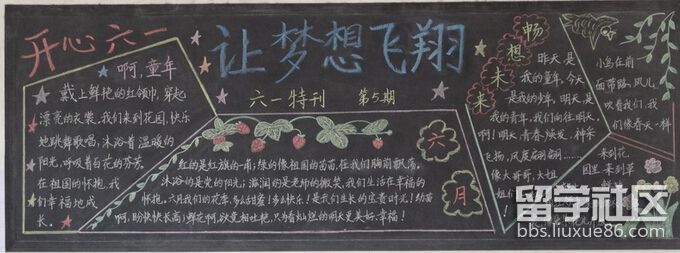 开心六一
让梦想飞翔
六一特刊 第5期
啊,童年
戴上鲜艳的红领巾,穿起
漂亮的衣裳,我们来到花园,快乐
地跳舞歌唱,沐浴着温暖的
阳光,呼吸着百花的芬芳
在祖国的怀抱,我
们幸福地成
长。
红的是红旗的一角;绿的像祖国的苗苗,在我们胸前飘荡。
沐浴的是党的阳光;滋润的是老师的微笑,我们生活在幸福的
怀抱。六月我们的花季,多么甜蜜!多么快乐!是我们生长的宝贵时光!幼苗
啊,盼快快长高;鲜花啊,欲竞相吐艳,只为着灿烂的明天更美好、幸福!
六
月
畅想未来
昨天,是
我的童年,今天
是我的少年,明天,是
我的青年,我们向往明天。
啊!明天,青春焕发,神采
飞扬,风度翩翩……
像大哥哥,大姐
姐们
小鸟在前
面带路,风儿
吹着我们,我
们像春天一样
来到花
园里,来到草
留学社区
bbs.liuxue86.com